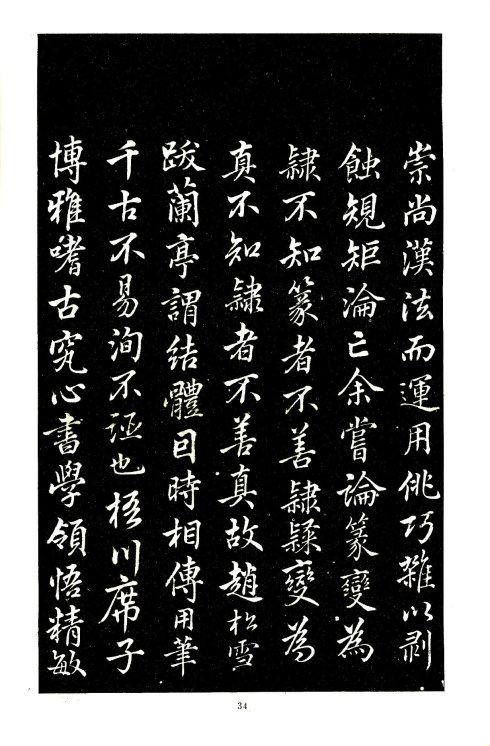 崇尚漢法而運用佻巧雜以剥
蝕規矩淪亡余嘗論篆變為
隸不知篆者不善隸隸變為
真不知隸者不善真故趙松雪
跋蘭亭謂結體因時相傳用筆
千古不易洵不誣也梧川席子
博雅嗜古究心書學領悟精敏
34